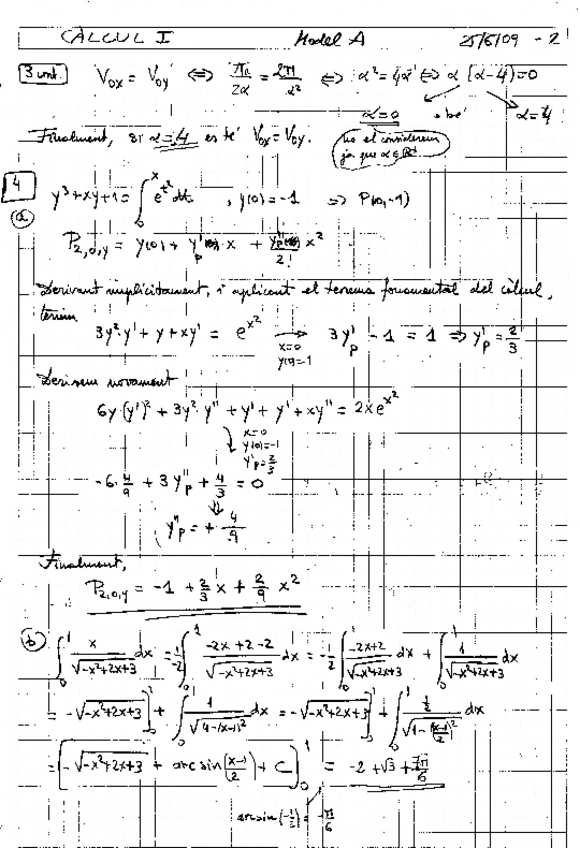 CÀLCUL I Model A 25/6/09 - 2
3 cont. V₀ₓ = V₀ᵧ ⟺ π/2α = 2π/α² ⟺ α² = 4α ⟺ α(α-4)=0
α=0 o bé α=4
Finalment, si α=4 es té V₀ₓ = V₀ᵧ. no el considerem
ja que α∈ℝ⁺
4
a) y³+xy+1 = ∫₀ˣ e^{t²} dt , y(0)=-1 ⇒ P(0,-1)
P₂,₀,y = y(0) + y'ₚ · x + y''ₚ/2! x²
Derivant implícitament, i aplicant el teorema fonamental del càlcul,
tenim
3y²·y' + y + xy' = e^{x²} → 3y'ₚ - 1 = 1 ⇒ y'ₚ = 2/3
x=0
y(0)=-1
Derivem novament
6y·(y')² + 3y²·y'' + y' + y' + xy'' = 2x e^{x²}
x=0
y(0)=-1
y'ₚ=2/3
-6·4/9 + 3y''ₚ + 4/3 = 0
⇓
y''ₚ = + 4/9
Finalment,
P₂,₀,y = -1 + 2/3 x + 2/9 x²
b) ∫₀¹ x/√(-x²+2x+3) dx = 1/-2 ∫₀¹ (-2x+2-2)/√(-x²+2x+3) dx = -1/2 ∫₀¹ (-2x+2)/√(-x²+2x+3) dx + ∫₀¹ 1/√(-x²+2x+3) dx
= -√(-x²+2x+3)]₀¹ + ∫₀¹ 1/√(4-(x-1)²) dx = -√(-x²+2x+3)]₀¹ + ∫₀¹ (1/2)/√(1-((x-1)/2)²) dx
= [-√(-x²+2x+3) + arcsin((x-1)/2) + C]₀¹ = -2 + √3 + π/6
arcsin(-1/2) = -π/6